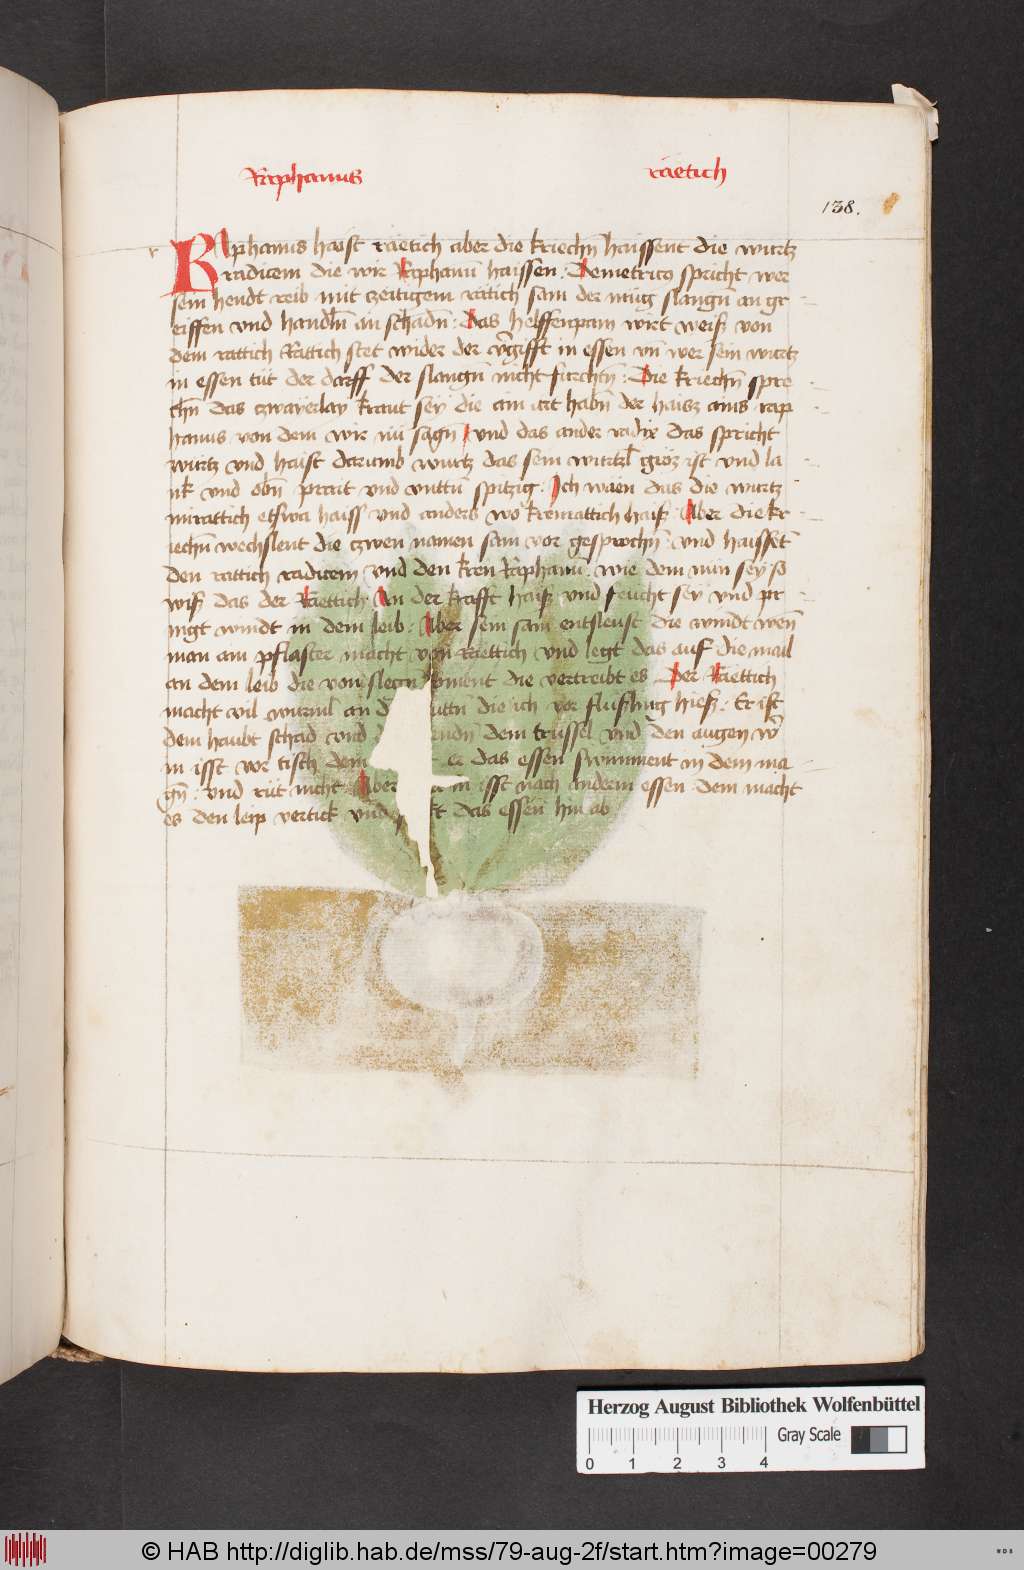 Raphanus raetich
138.
Raphanus haist raetich aber die kriechn̄ haissent die wurtz
radicem die wir Raphanū haissen : Demetriꝯ spricht wer
sein hendt reib mit czeitigem rätich sam der müg slangn̄ an gr
eiffen vnd handln̄ an schadn̄ : Das helffenpain wirt weiß von
dem rattich Rättich stet wider der vergifft in essen vn̄ wer sein wurtz
in essen tüt der darff der slangn̄ nicht furchtn̄ : Die kriechn̄ spre
chn̄ das czwayerlay kraut sey die ain art habn̄ der haisz ains rap
hanus von dem wir nū sagn̄ / vnd das ander radix das spricht
wurtz vnd haist darumb wurtz das sein wurtzl groz ist vnd la
nk vnd obn̄ prait vnd vnttn̄ spitzig . Ich waen das die wurtz
mirattich etswa haiss vnd anders wo krenrattich haiß : Aber die kr
iechn̄ wechslent die czwen namen sam vor gesprochn̄ : vnd haisset
den rattich radicem vnd den kren Raphanū . wie dem nun sey so
wiß das der Räettich An der krafft haiß vnd feucht sey vnd pr
ingt windt in dem leib : Aber sein sam entsleust die windt wen̄
man ain pflaster macht von Räettich vnd legt das auf die mail
an dem leib die von slegn̄ koment die vertreibt es . Der Räettich
macht vil wurml an d uttn̄ die ich vor flußling hieß : Er ist
dem haubt schad vnd d endn̄ dem trüssel vnd den augen
in isst vor tisch dem das essen swimment in dem ma
gn̄ : vnd rüt nicht : Aber in isst nach anderm essen dem macht
es den leip vertick vnd kt das essen̄ hin ab
Herzog August Bibliothek Wolfenbüttel
Gray Scale
0 1 2 3 4
© HAB http://diglib.hab.de/mss/79-aug-2f/start.htm?image=00279